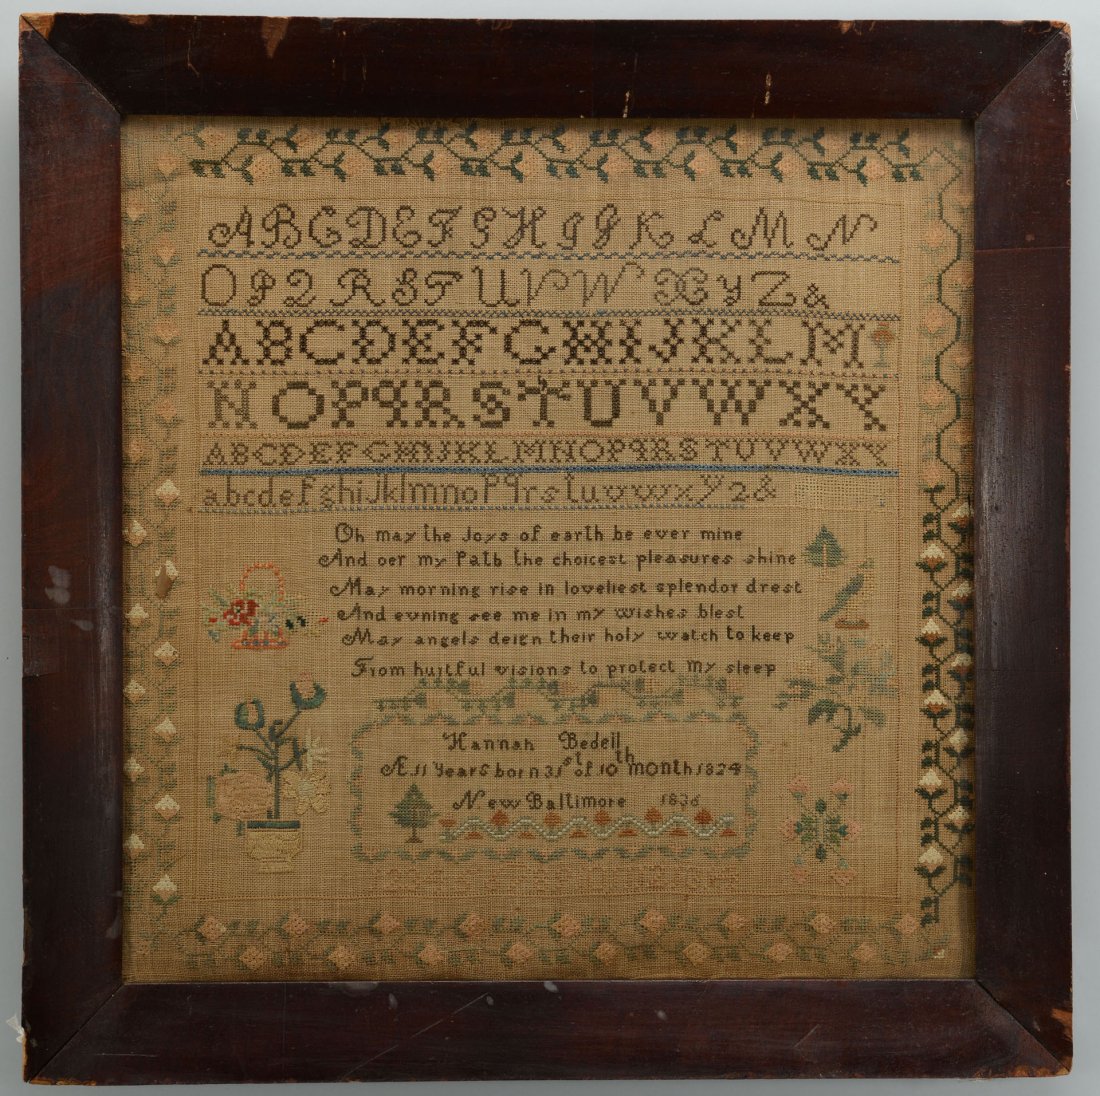 A B C D E F G H I J K L M N
O P Q R S T U V W X Y Z &
A B C D E F G H I J K L M
N O P Q R S T U V W X Y
A B C D E F G H I J K L M N O P Q R S T U V W X Y
a b c d e f g h i j k l m n o p q r s t u v w x y z &
Oh may the Joys of earth be ever mine
And oer my Path the choicest pleasures shine
May morning rise in loveliest splendor drest
And evning see me in my wishes blest
May angels deign their holy watch to keep
From hurtful visions to protect my sleep
Hannah Bedell
Æ 11 Years born 31st of 10th month 1824
New Baltimore 1836